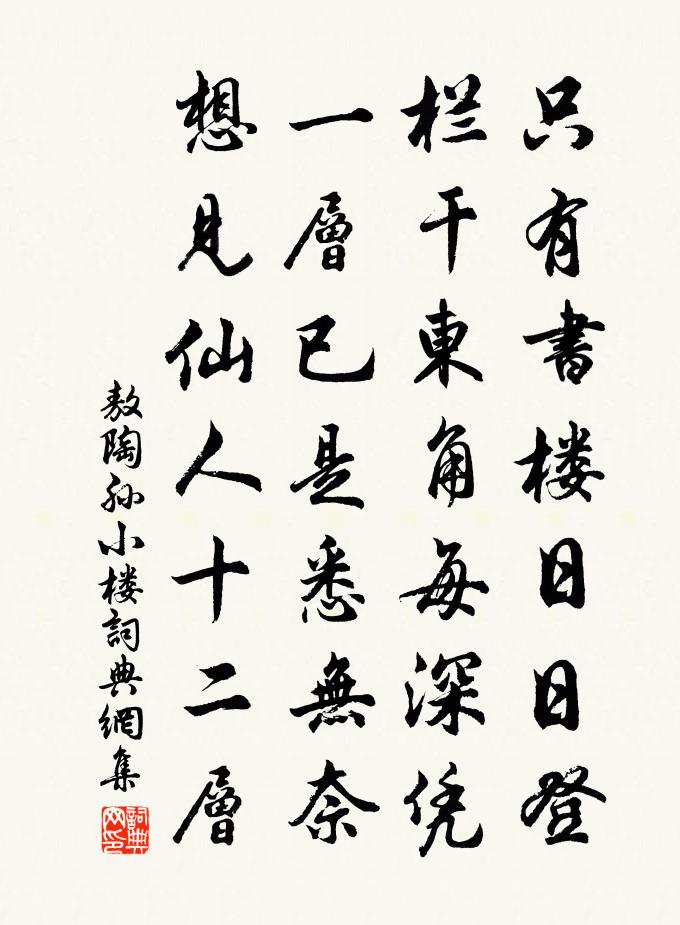 只有書楼日日登
栏干東角每深凭
一層已是悉無奈
想見仙人十二層
敖陶孙小楼詞典網集
詞典網印